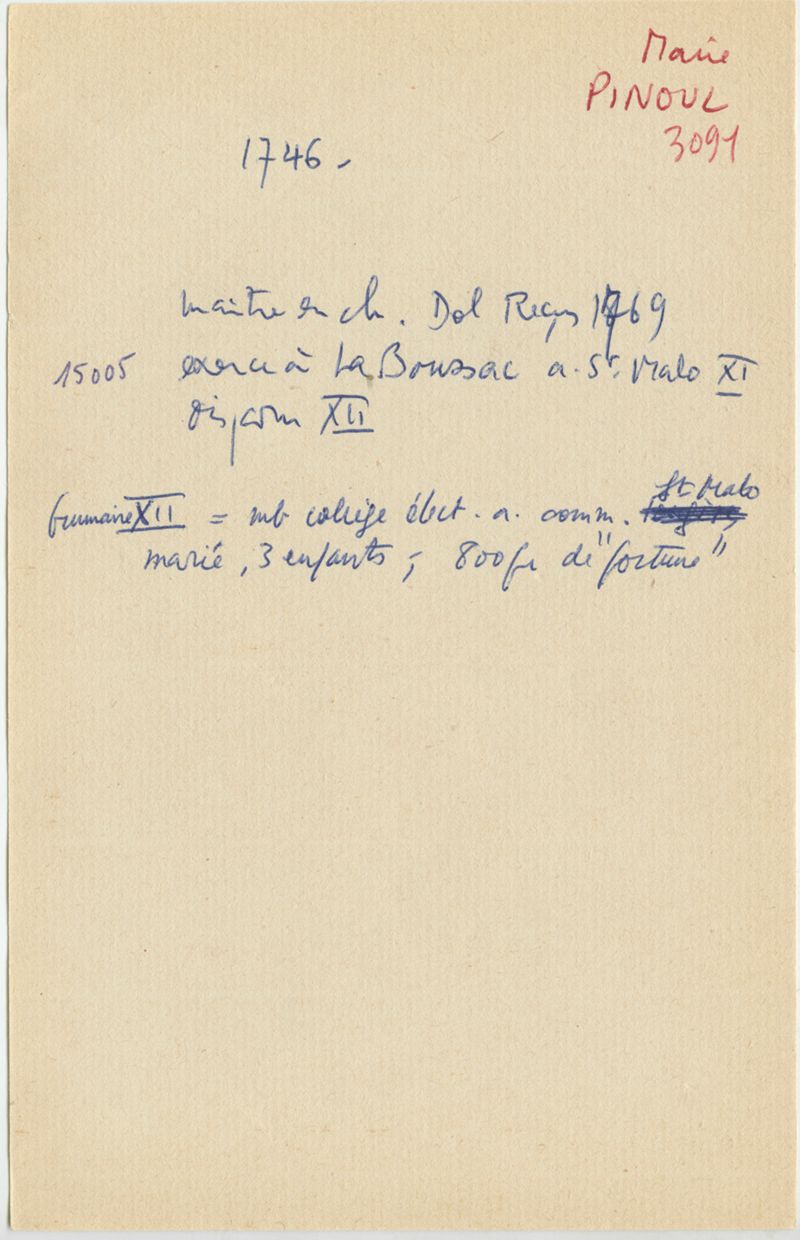 Marie
PINOUL
3091
1746.
Maître en ch. Dol Reçu 1769
15005 exerce à La Boussac a. St. Malo XI
disparu XII
brumaire XII = mb collège élect. a. comm. St Malo
marié, 3 enfants, 800 fr de "fortune"